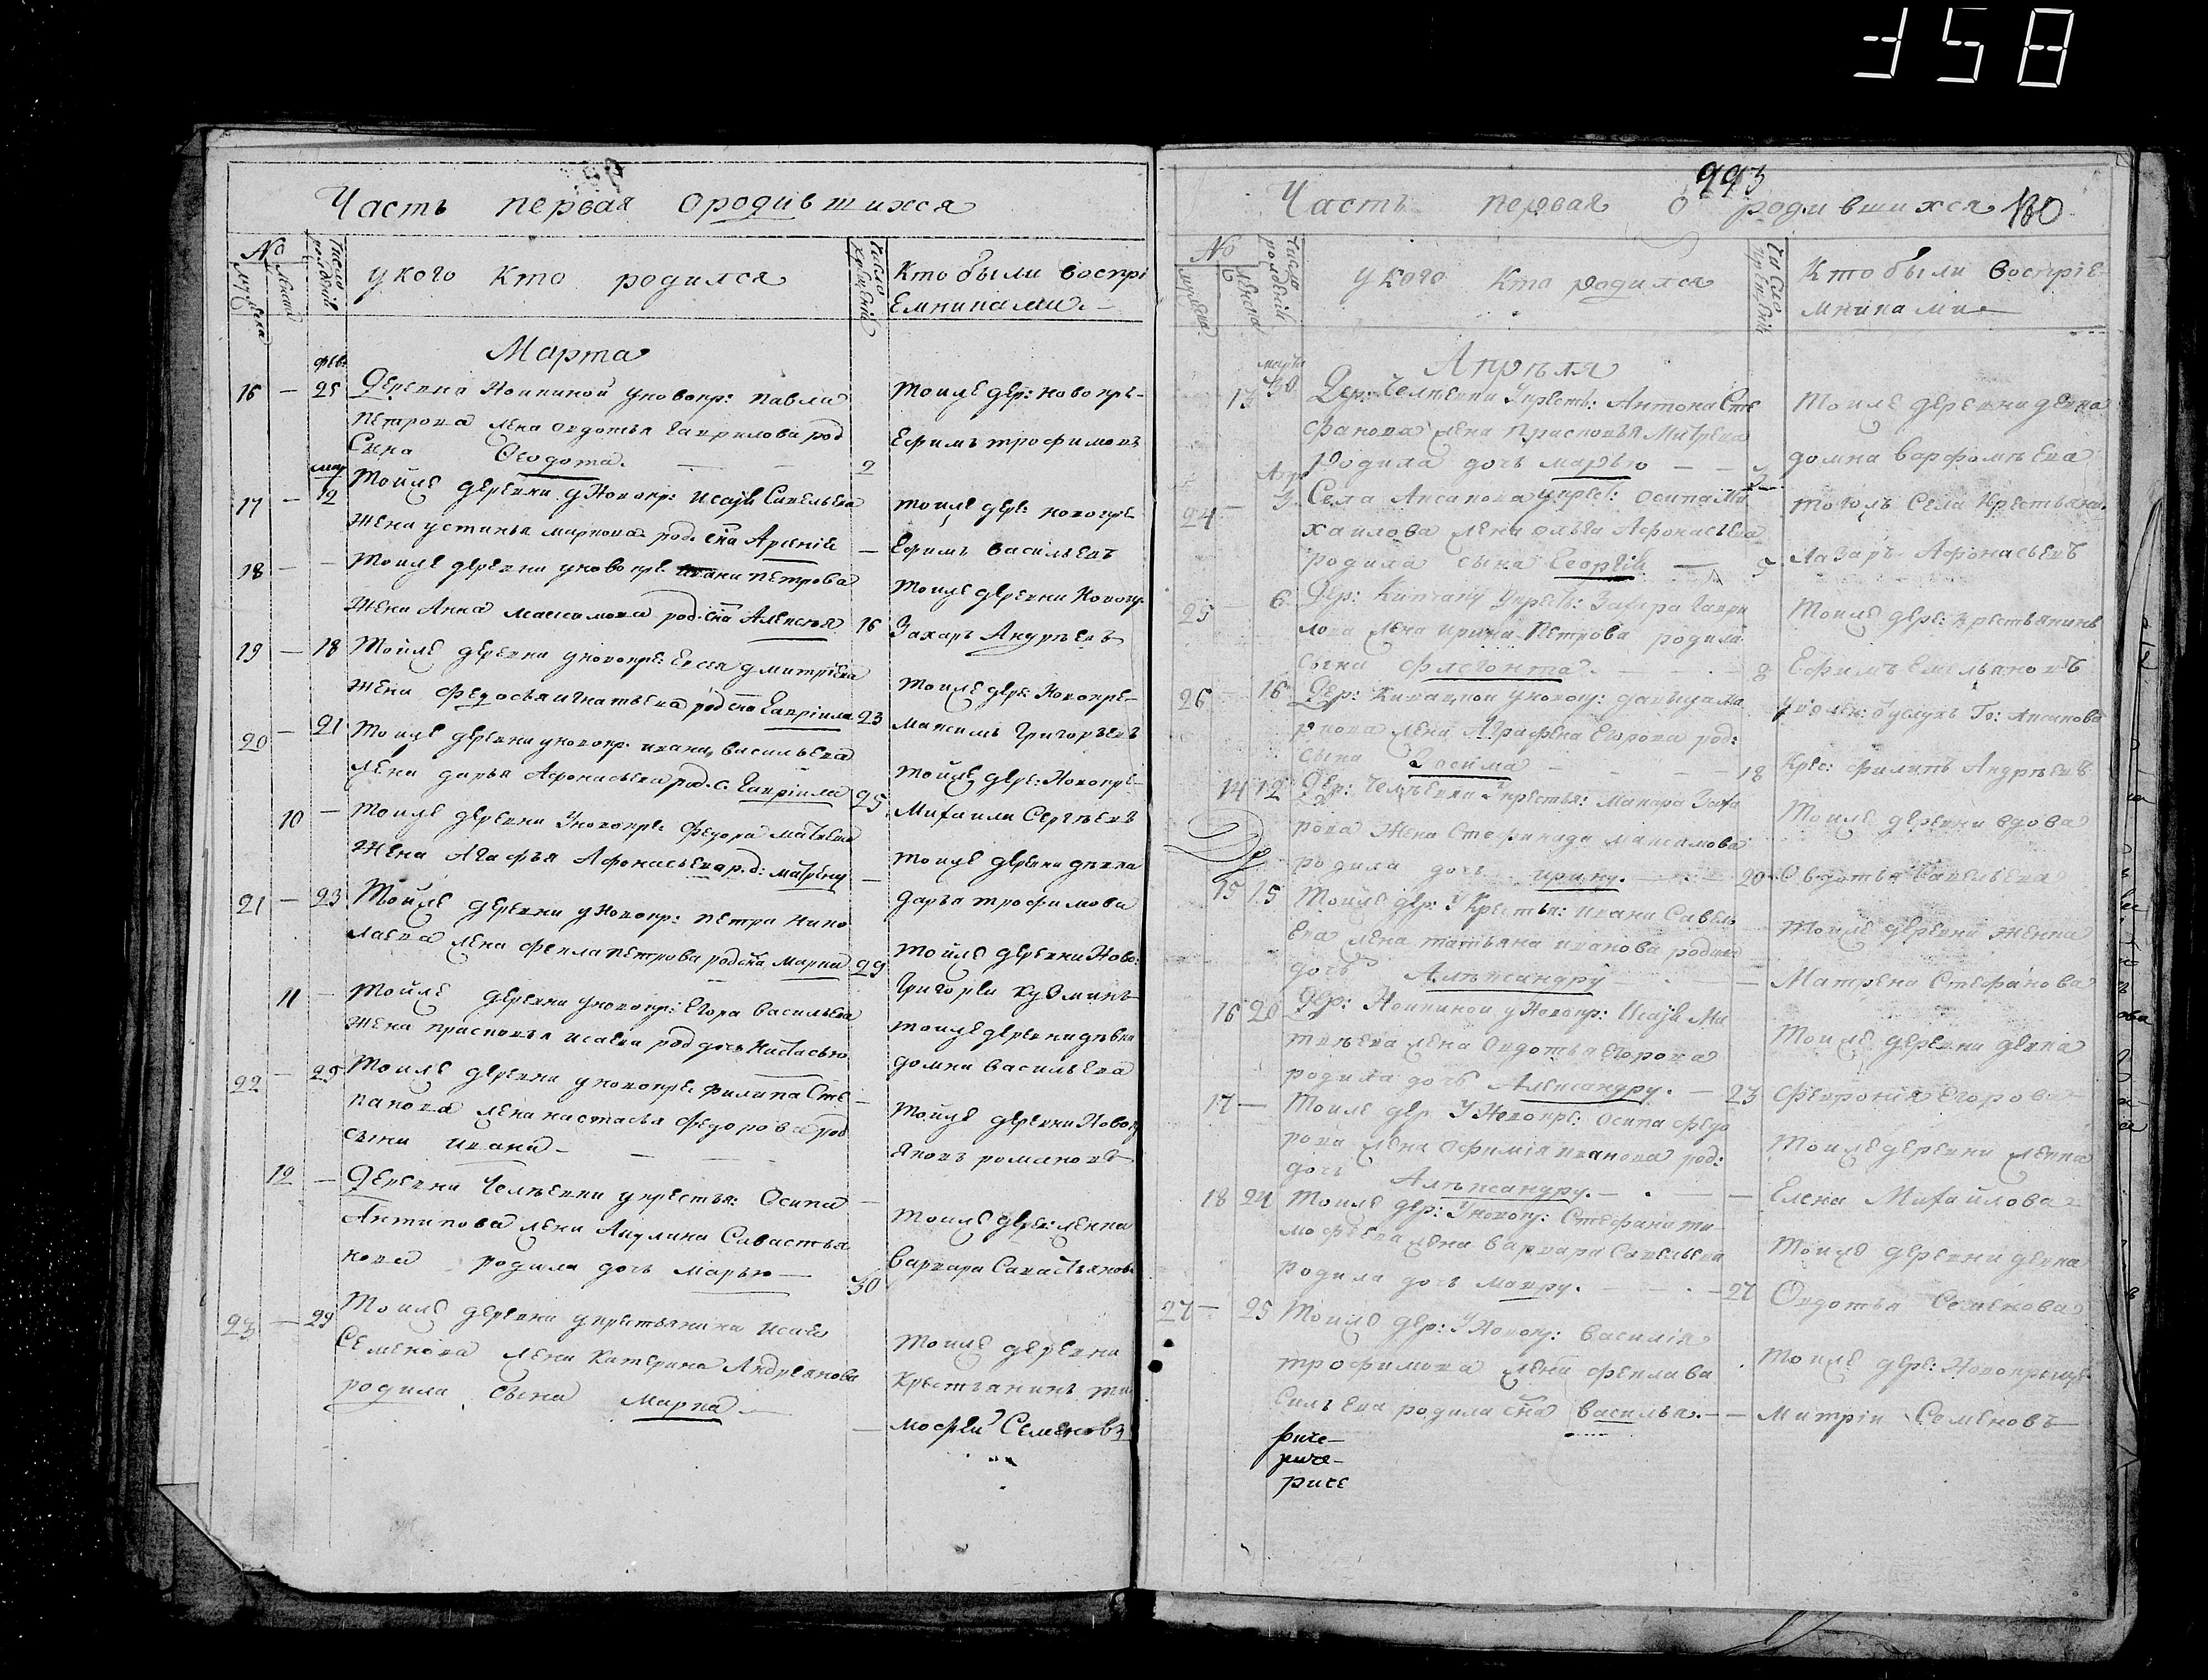 358
Часть первая о родившихся
№
мужеска
женска
Число рождений
у кого кто родился
Число крещений
Кто были воспрі
емниками
Марта
фев:
16 — 25 Деревни Поипиной у новокр: Павла
Петрова жена Овдотья Гаврилова род
Сына Феодота. — — 2
Тоиже дер: новокре-
Ефимъ Трофимовъ
мар
17 — 12 Тоиже деревни у Новокр: Исаіи Савельева
жена Устинья Маркова род. сна Арсеній —
Тоиже дерев: новокре-
Ефимъ Васильевъ
18 — — Тоиже деревни у новокре: Ивана Петрова
жена Анна Максимова род. сна Алексея 16
Тоиже деревни Новокр.
Захаръ Андреевъ
19 — 18 Тоиже деревни у новокре: Евсея Дмитріева
жена Федосья Игнатьева род сна Гавріила 23
Тоиже дере: Новокре-
Максимъ Григорьевъ
20 — 21 Тоиже деревни у новокр. Ивана Васильева
жена Дарья Афонасьева род. с. Гавріила 25
Тоиже дере: Новокре-
Михаила Сергѣевъ
10 — Тоиже деревни у новокре: Федора Матвеева
жена Агафья Афонасьева р. д: Матрену —
Тоиже деревни девка
Дарья Трофимова
21 — 23 Тоиже деревни у Новокр: Петра Нико
лаева жена Фекла Петрова род сна Марка 29
Тоиже деревни Ново:
Григореи Кузминъ
11 — Тоиже деревни у новокр: Егора Васильева
жена Прасковья Исаева род дочь Настасью
Тоиже деревни девка
Домна Васильева
22 — 25 Тоиже деревни у новокре: Филипа Сте
панова жена Настасья Федорова род
сына Ивана — — —
Тоиже деревни Новок
Яковъ Романовъ
12 — Деревни Челкевки у крестья: Осипа
Антипова жена Акулина Савастья
нова родила дочь Марью — 30
Тоиже дере: женка
Варвара Савастьянова
23 — 29 Тоиже деревни у крестьянина Исаіи
Семенова жена Катерина Андреянова
родила сына Марка —
Тоиже деревни
Крестьянинъ Ти
мофеи Семеновъ
993
180
Часть первая о родившихся
№
мужеска
женска
Число рождений
У кого кто родился
Число крещений
Кто были воспріе
мниками
марта
Апреля
13 30 Дер: Челкевки У крестъ: Антона Сте
фанова жена Прасковья Митрева
родила дочь Марью — —
Тоиже деревни девка
Домна Варфоломеева
Апр
24 — 3 Села Аксакова у крест: Осипа Ми
хаилова жена Ольга Афонасьева
родила сына Георгій — 5
Тогожъ села Крестьяни.
Лазаръ Афонасьевъ
25 — 6 Дер: у крестъ: Захара Гаври
лова жена Ирина Петрова родила
сына Флегонта. — 8
Тоиже дере: Крестьянинъ
Ефимъ Емельяновъ
26 — 16 Дер: у новокр: Данила Ма
ркова жена Аграфена Егорова род:
сына Зосима — — 18
Аксакова
Крес: Филипъ Андреевъ
14 12 Дер: Челкевки У крестья: Макара Заха
рова жена Стефанида Максимова
родила дочь Ирину. — 20
Тоиже деревни вдова
Овдотья Савельева
15 15 Тоиже дер: У крестья: Ивана Савель
ева жена Татьяна Иванова родила
дочь Александру —
Тоиже деревни женка
Матрена Стефанова
16 20 Дер: Поипиной у Новокр: Исаіи Ма
твеева жена Овдотья Егорова
родила дочь Александру. — 23
Тоиже деревни девка
Феврония Егорова
17 — Тоиже дер У Новокре: Осипа Федо
рова жена Офимія Иванова род:
дочь Александру. — . —
Тоиже деревни женка
Елена Михаилова
18 24 Тоиже дер: У новокр: Стефана Ти
мофеева жена Варвара Савельева
родила дочь Мавру. — 27
Тоиже деревни девка
Овдотья Семенова
27 — 25 Тоиже дер: У Новокр: Василія
Трофимова жена Фекла Ва
сильева родила сна Василья. —
Тоиже дере: Новокреще
— Митріи Семеновъ